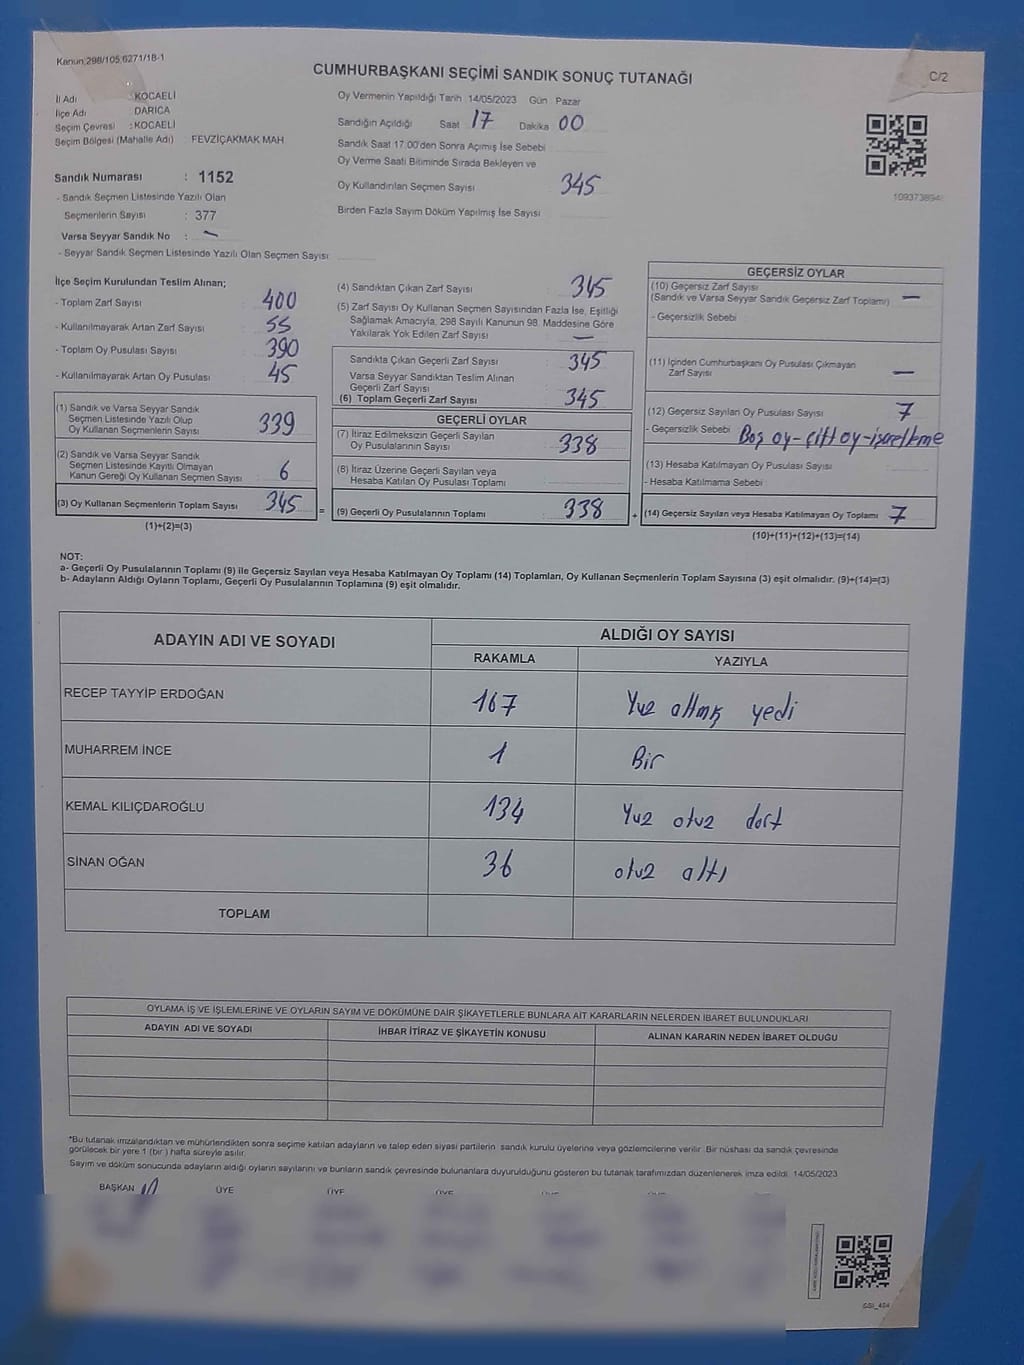 Kanun:298/105,6271/18-1
C/2
CUMHURBAŞKANI SEÇİMİ SANDIK SONUÇ TUTANAĞI
İl Adı : KOCAELİ
İlçe Adı DARICA
Seçim Çevresi : KOCAELİ
Seçim Bölgesi (Mahalle Adı) : FEVZİÇAKMAK MAH
Sandık Numarası : 1152
- Sandık Seçmen Listesinde Yazılı Olan
Seçmenlerin Sayısı : 377
Varsa Seyyar Sandık No : —
- Seyyar Sandık Seçmen Listesinde Yazılı Olan Seçmen Sayısı
Oy Vermenin Yapıldığı Tarih 14/05/2023 Gün : Pazar
Sandığın Açıldığı Saat 17 Dakika 00
Sandık Saat 17:00'den Sonra Açımış İse Sebebi
Oy Verme Saati Bitiminde Sırada Bekleyen ve
Oy Kullandırılan Seçmen Sayısı 345
Birden Fazla Sayım Döküm Yapılmış İse Sayısı
İlçe Seçim Kurulundan Teslim Alınan;
- Toplam Zarf Sayısı : 400
- Kullanılmayarak Artan Zarf Sayısı : 55
- Toplam Oy Pusulası Sayısı : 390
- Kullanılmayarak Artan Oy Pusulası : 45
(1) Sandık ve Varsa Seyyar Sandık
Seçmen Listesinde Yazılı Olup
Oy Kullanan Seçmenlerin Sayısı : 339
(2) Sandık ve Varsa Seyyar Sandık
Seçmen Listesinde Kayıtlı Olmayan
Kanun Gereği Oy Kullanan Seçmen Sayısı : 6
(3) Oy Kullanan Seçmenlerin Toplam Sayısı 345 =
(1)+(2)=(3)
(4) Sandıktan Çıkan Zarf Sayısı : 345
(5) Zarf Sayısı Oy Kullanan Seçmen Sayısından Fazla İse, Eşitliği
Sağlamak Amacıyla, 298 Sayılı Kanunun 98. Maddesine Göre
Yakılarak Yok Edilen Zarf Sayısı : —
Sandıkta Çıkan Geçerli Zarf Sayısı : 345
Varsa Seyyar Sandıktan Teslim Alınan
Geçerli Zarf Sayısı
(6) Toplam Geçerli Zarf Sayısı : 345
GEÇERLİ OYLAR
(7) İtiraz Edilmeksizin Geçerli Sayılan
Oy Pusulasının Sayısı : 338
(8) İtiraz Üzerine Geçerli Sayılan veya
Hesaba Katılan Oy Pusulası Toplamı
(9) Geçerli Oy Pusulalarının Toplamı : 338 +
GEÇERSİZ OYLAR
(10) Geçersiz Zarf Sayısı
(Sandık ve Varsa Seyyar Sandık Geçersiz Zarf Toplamı) : —
- Geçersizlik Sebebi
(11) İçinden Cumhurbaşkanı Oy Pusulası Çıkmayan
Zarf Sayısı —
(12) Geçersiz Sayılan Oy Pusulası Sayısı : 7
- Geçersizlik Sebebi Boş oy-çift oy-işaretleme
(13) Hesaba Katılmayan Oy Pusulası Sayısı
- Hesaba Katılmama Sebebi
(14) Geçersiz Sayılan veya Hesaba Katılmayan Oy Toplamı 7
(10)+(11)+(12)+(13)=(14)
NOT:
a- Geçerli Oy Pusulalarının Toplamı (9) ile Geçersiz Sayılan veya Hesaba Katılmayan Oy Toplamı (14) Toplamları, Oy Kullanan Seçmenlerin Toplam Sayısına (3) eşit olmalıdır. (9)+(14)=(3)
b- Adayların Aldığı Oyların Toplamı, Geçerli Oy Pusulalarının Toplamına (9) eşit olmalıdır.
ADAYIN ADI VE SOYADI ALDIĞI OY SAYISI
RAKAMLA YAZIYLA
RECEP TAYYİP ERDOĞAN 167 Yuz altmış yedi
MUHARREM İNCE 1 Bir
KEMAL KILIÇDAROĞLU 134 Yuz otuz dort
SİNAN OĞAN 36 otuz altı
TOPLAM
OYLAMA İŞ VE İŞLEMLERİNE VE OYLARIN SAYIM VE DÖKÜMÜNE DAİR ŞİKAYETLERLE BUNLARA AİT KARARLARIN NELERDEN İBARET BULUNDUKLARI
ADAYIN ADI VE SOYADI İHBAR İTİRAZ VE ŞİKAYETİN KONUSU ALINAN KARARIN NEDEN İBARET OLDUĞU
*Bu tutanak imzalandıktan ve mühürlendikten sonra seçime katılan adayların ve talep eden siyasi partilerin sandık kurulu üyelerine veya gözlemcilerine verilir. Bir nüshası da sandık çevresinde
görülecek bir yere 1 (bir) hafta süreyle asılır.
Sayım ve döküm sonucunda adayların aldığı oyların sayılarını ve bunların sandık çevresinde bulunanlara duyurulduğunu gösteren bu tutanak tarafımızdan düzenlenerek imza edildi. 14/05/2023
BAŞKAN ÜYE ÜYE ÜYE